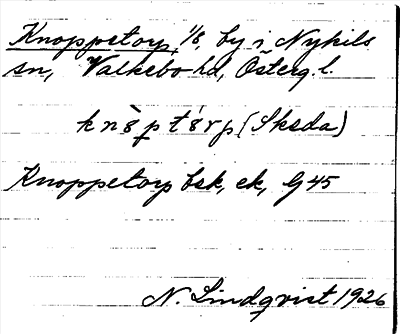 Knoppetorp, 1/8, by i Nykils
sn, Valkebo hd, Österg. l.
knòptórp (Skeda)
Knoppetorp bsk, ek, G 45
N. Lindqvist 1926